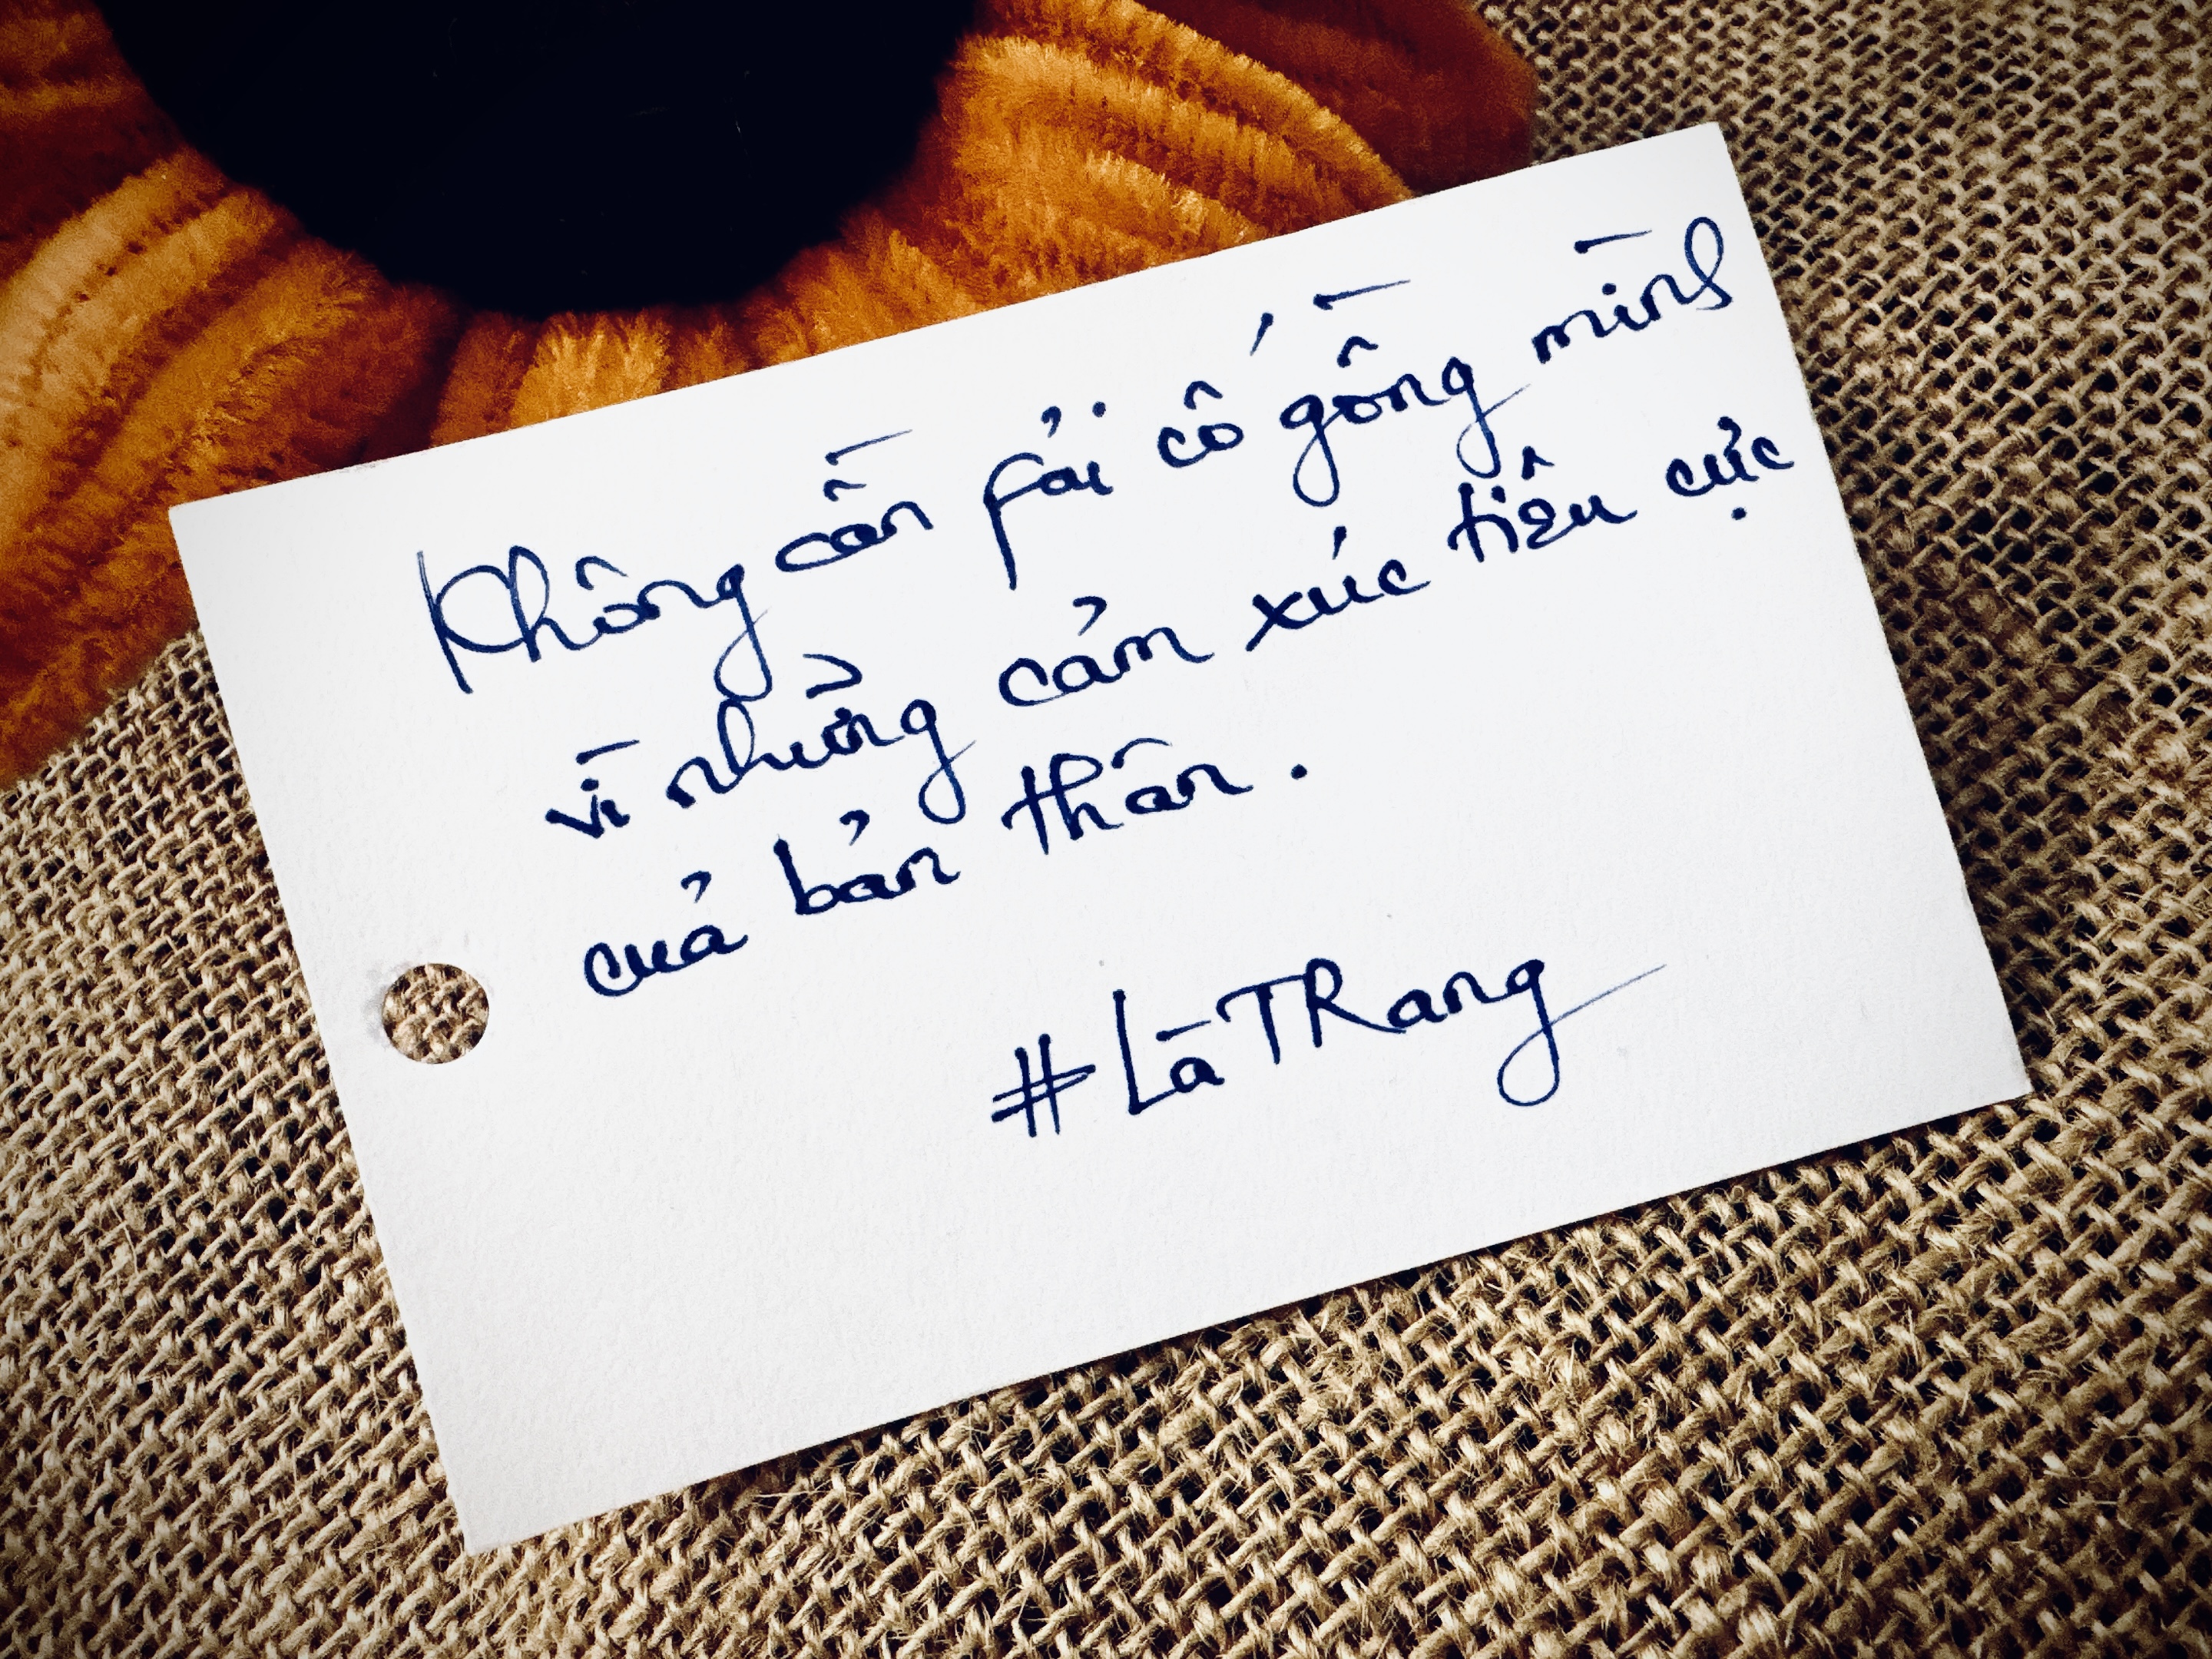 Không cần fải cố gồng mình
vì những cảm xúc tiêu cực
của bản thân.
#LàTRang